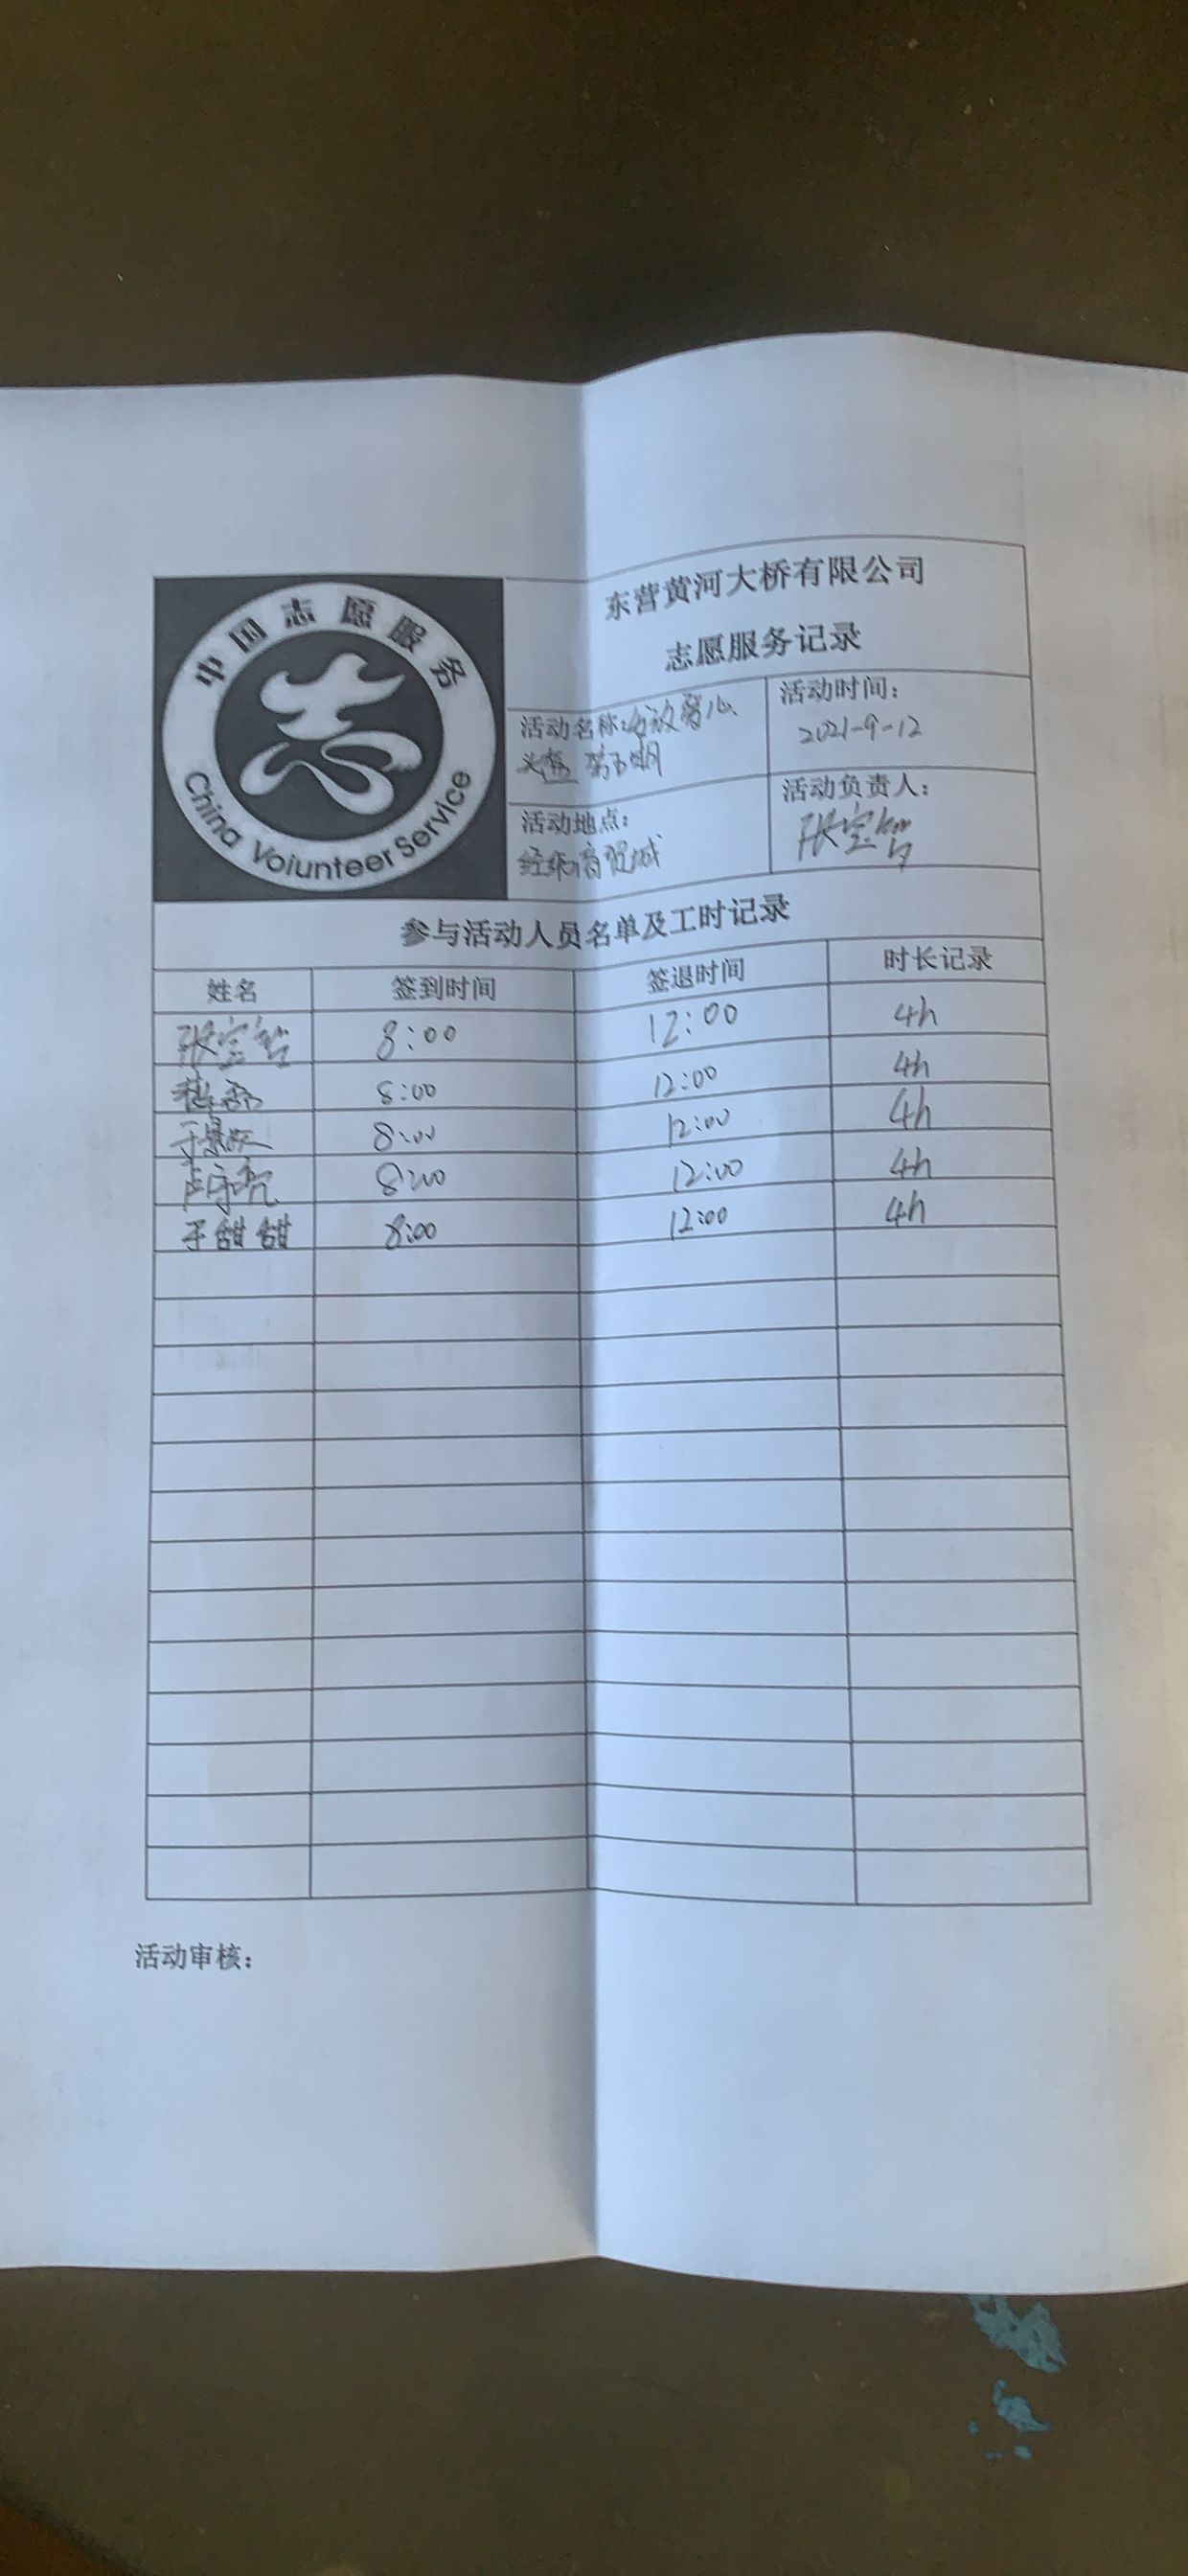 中国志愿服务
China Voiunteer Service
东营黄河大桥有限公司
志愿服务记录
活动名称:
第五期
活动时间:
2021-9-12
活动地点:
经纬商贸城
活动负责人:
张宝
参与活动人员名单及工时记录
姓名 签到时间 签退时间 时长记录
张宝 8:00 12:00 4h
8:00 12:00 4h
8:00 12:00 4h
8:00 12:00 4h
于甜甜 8:00 12:00 4h
活动审核: